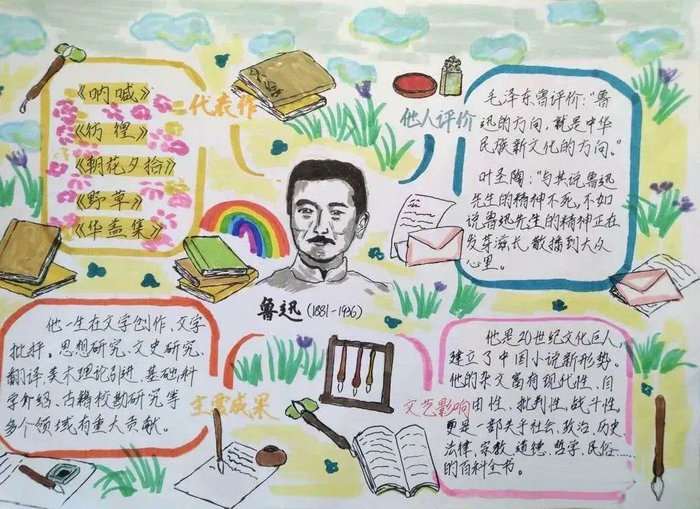 《呐喊》
《彷徨》
《朝花夕拾》
《野草》
《华盖集》
代表作
他人评价
毛泽东曾评价:"鲁
迅的方向,就是中华
民族新文化的方向。"
叶圣陶:"与其说鲁迅
先生的精神不死,不如
说鲁迅先生的精神正在
发芽滋长,散播到大众
心里。
鲁迅(1881-1936)
他一生在文学创作、文学
批评、思想研究、文史研究、
翻译、美术理论引进、基础科
学介绍、古籍校勘研究等
多个领域有重大贡献。
主要成果
文艺影响
他是20世纪文化巨人,
建立了中国小说新形势。
他的杂文富有现代性、自
由性、批判性、战斗性。
更是一部关乎社会、政治、历史、
法律、宗教、道德、哲学、民俗……
的百科全书。